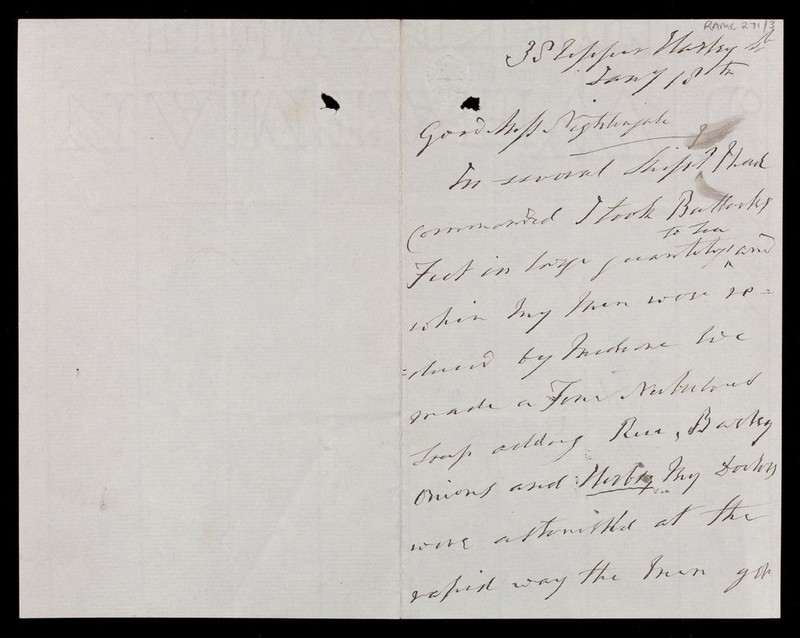 RAMC 271/3
38 Upper Harley St
Jany 18th
Good Miss Nightingale
In several Ships I had
Commanded I took Bullocks
to Sea
Feet in large quantitys and
when My Men were re=
=duced by Medicine &c
made a Fine
Soup adding Rice, Barley
Onions and Herbs, My Doctors
were astonished at the
rapid way the Men got